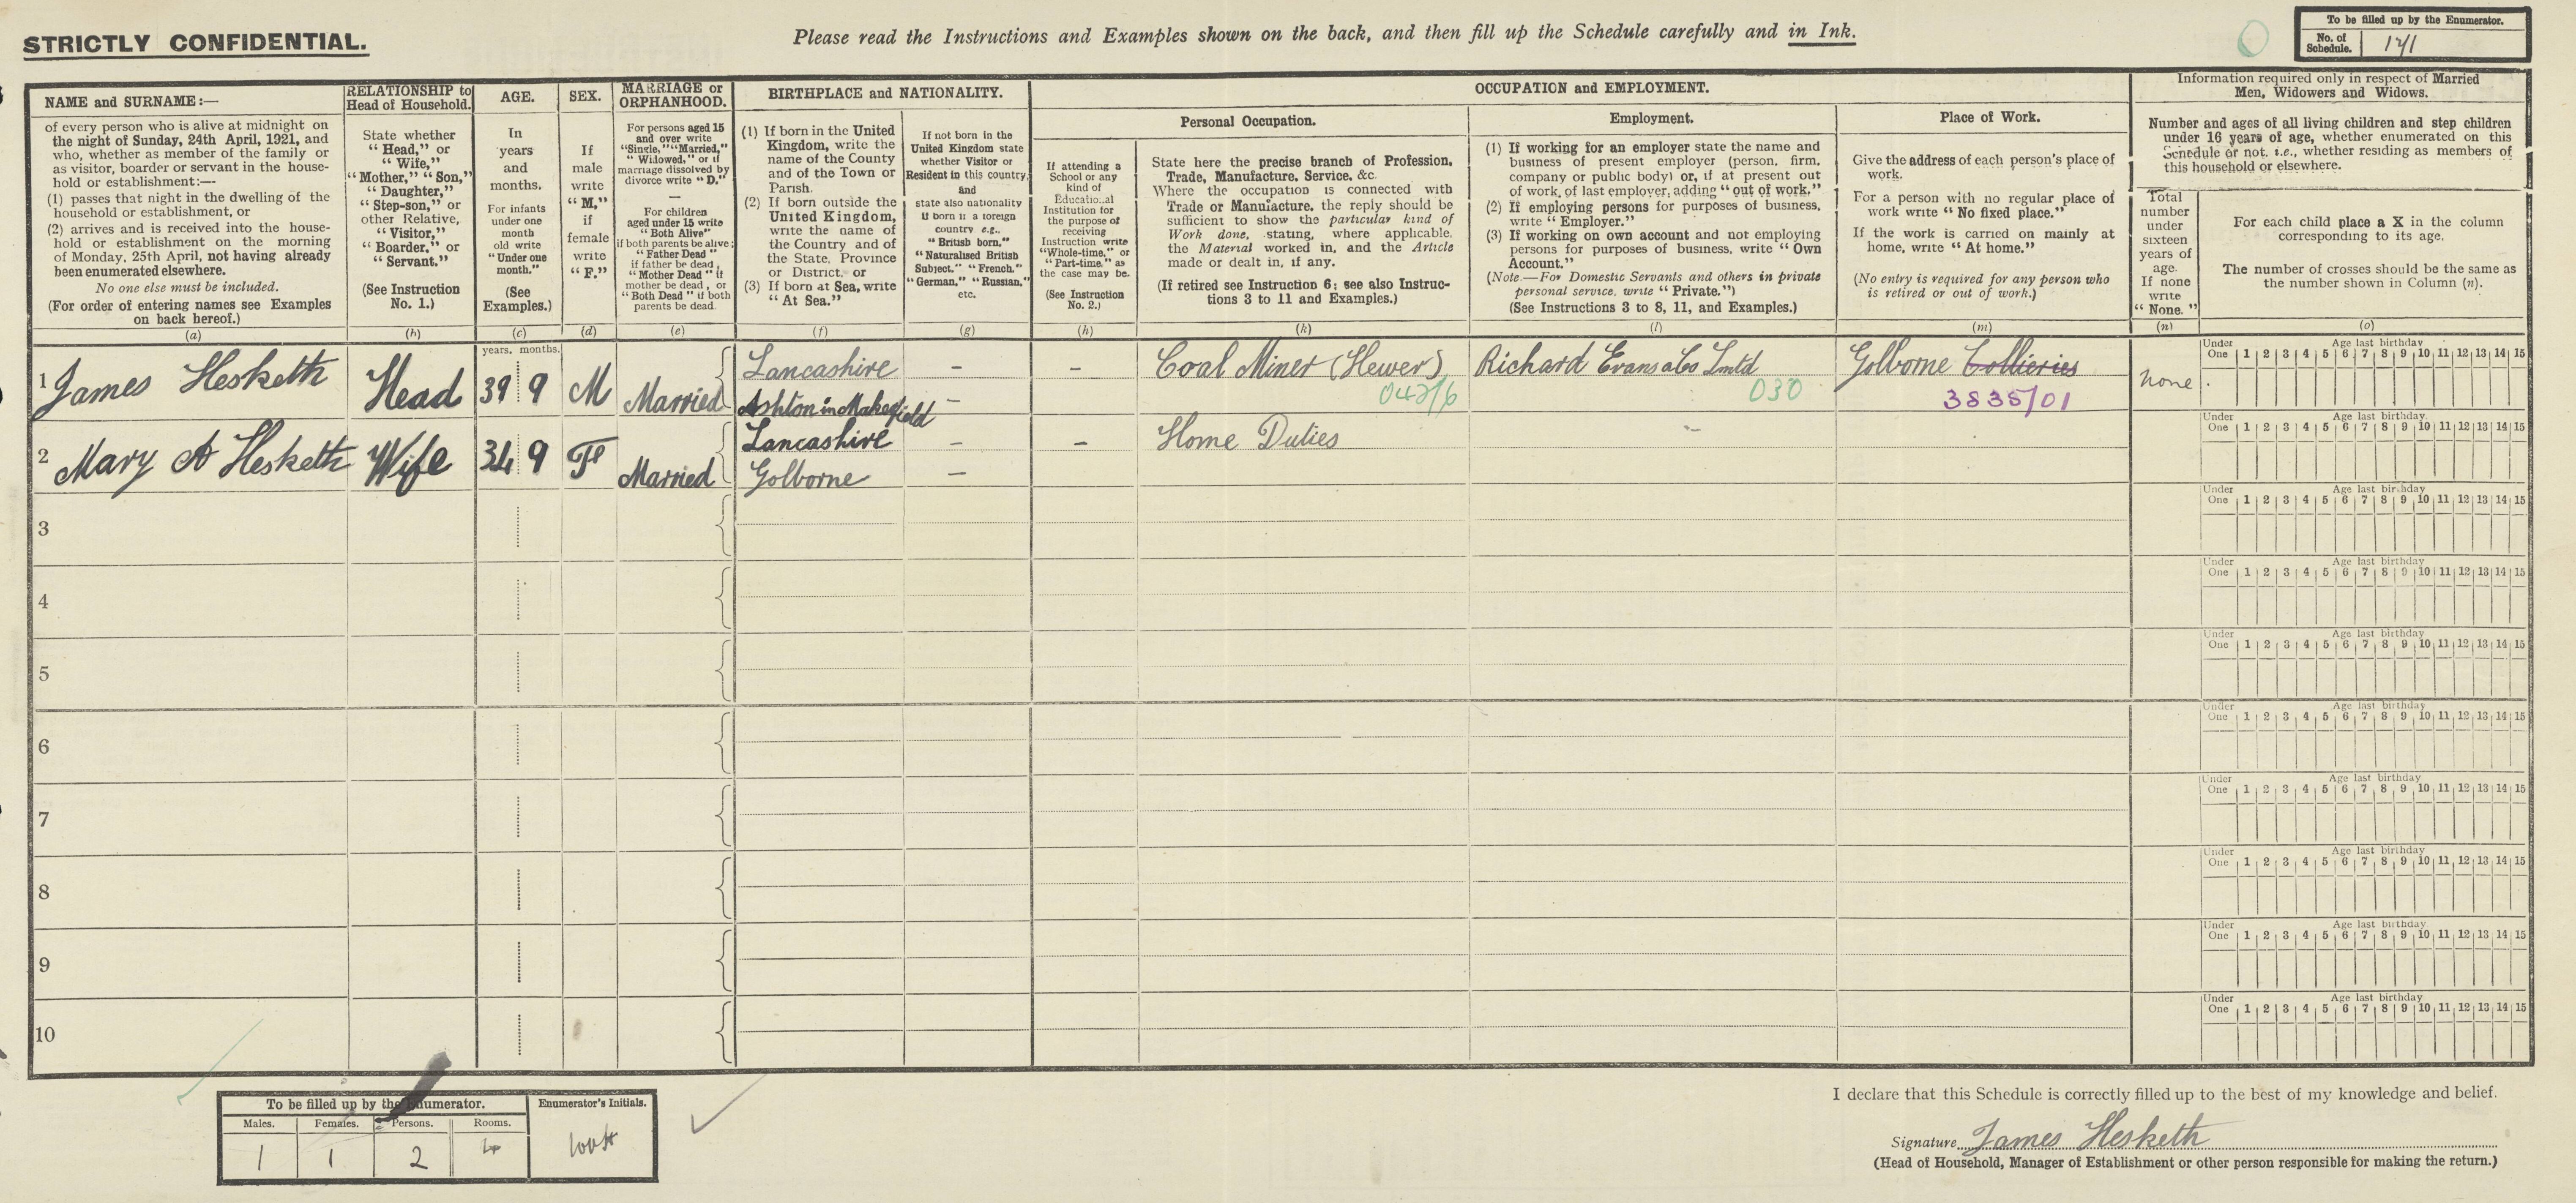 STRICTLY CONFIDENTIAL.
Please read the Instructions and Examples shown on the back, and then fill up the Schedule carefully and in Ink.
To be filled up by the Enumerator.
No. of Schedule.
NAME and SURNAME:—
of every person who is alive at midnight on
the night of Sunday, 24th April, 1921, and
who, whether as member of the family or
as visitor, boarder or servant in the house-
hold or establishment:—
(1) passes that night in the dwelling of the
household or establishment, or
(2) arrives and is received into the house-
hold or establishment on the morning
of Monday, 25th April, not having already
been enumerated elsewhere.
No one else must be included.
(For order of entering names see Examples
on back hereof.)
(a)
RELATIONSHIP to
Head of Household.
State whether
“Head,” or
“Wife,”
“Mother,” “Son,”
“Daughter,”
“Step-son,” or
other Relative,
“Visitor,”
“Boarder,” or
“Servant.”
(See Instruction
No. 1.)
AGE.
In
years
and
months.
For infants
under one
month
old write
“Under one
month.”
(See
Examples.)
(c)
SEX.
If
male
write
“M,”
if
female
write
“F.”
(d)
MARRIAGE or
ORPHANHOOD.
For persons aged 15
and over write
“Single,” “Married,”
“Widowed,” or if
marriage dissolved by
divorce write “D.”
—
For children
aged under 15 write
“Both Alive”
if both parents be alive;
“Father Dead”
if father be dead,
“Mother Dead” if
mother be dead, or
“Both Dead” if both
parents be dead.
(e)
BIRTHPLACE and NATIONALITY.
(1) If born in the United
Kingdom, write the
name of the County
and of the Town or
Parish.
(2) If born outside the
United Kingdom,
write the name of
the Country and of
the State, Province
or District, or
(3) If born at Sea, write
“At Sea.”
(f)
If not born in the
United Kingdom state
whether Visitor or
Resident in this country,
and
state also nationality
if born in a foreign
country e.g.,
“British born,”
“Naturalised British
Subject,” “French,”
“German,” “Russian,”
etc.
(g)
OCCUPATION and EMPLOYMENT.
Personal Occupation.
If attending a
School or any
kind of
Educational
Institution for
the purpose of
receiving
Instruction write
“Whole-time,” or
“Part-time,” as
the case may be.
(See Instruction
No. 2.)
(h)
State here the precise branch of Profession,
Trade, Manufacture, Service, &c.
Where the occupation is connected with
Trade or Manufacture, the reply should be
sufficient to show the particular kind of
Work done, stating, where applicable,
the Material worked in, and the Article
made or dealt in, if any.
(If retired see Instruction 6; see also Instruc-
tions 3 to 11 and Examples.)
(k)
Employment.
(1) If working for an employer state the name and
business of present employer (person, firm,
company or public body) or, if at present out
of work, of last employer, adding “out of work.”
(2) If employing persons for purposes of business,
write “Employer.”
(3) If working on own account and not employing
persons for purposes of business, write “Own
Account.”
(Note.—For Domestic Servants and others in private
personal service, write “Private.”)
(See Instructions 3 to 8, 11, and Examples.)
(l)
Place of Work.
Give the address of each person's place of
work.
For a person with no regular place of
work write “No fixed place.”
If the work is carried on mainly at
home, write “At home.”
(No entry is required for any person who
is retired or out of work.)
(m)
Information required only in respect of Married
Men, Widowers and Widows.
Number and ages of all living children and step children
under 16 years of age, whether enumerated on this
Schedule or not, i.e., whether residing as members of
this household or elsewhere.
Total
number
under
sixteen
years of
age.
If none
write
“None.”
(n)
For each child place a X in the column
corresponding to its age.
The number of crosses should be the same as
the number shown in Column (n).
(o)
years. months.
1 James Hesketh Head 39 9 M Married Lancashire – – Coal Miner (Hewer) Richard Evans & Co Lmtd Golborne Collieries none
Ashton in Makerfield – 030 3835/01
Under One 1 2 3 4 5 6 7 8 9 10 11 12 13 14 15
Age last birthday
2 Mary A Hesketh Wife 34 9 F Married Lancashire – – Home Duties
Golborne –
Under One 1 2 3 4 5 6 7 8 9 10 11 12 13 14 15
Age last birthday
3
Under One 1 2 3 4 5 6 7 8 9 10 11 12 13 14 15
Age last birthday
4
Under One 1 2 3 4 5 6 7 8 9 10 11 12 13 14 15
Age last birthday
5
Under One 1 2 3 4 5 6 7 8 9 10 11 12 13 14 15
Age last birthday
6
Under One 1 2 3 4 5 6 7 8 9 10 11 12 13 14 15
Age last birthday
7
Under One 1 2 3 4 5 6 7 8 9 10 11 12 13 14 15
Age last birthday
8
Under One 1 2 3 4 5 6 7 8 9 10 11 12 13 14 15
Age last birthday
9
Under One 1 2 3 4 5 6 7 8 9 10 11 12 13 14 15
Age last birthday
10
Under One 1 2 3 4 5 6 7 8 9 10 11 12 13 14 15
Age last birthday
To be filled up by the Enumerator.
Enumerator's Initials.
Males. Females. Persons. Rooms.
1 1 2 4
I declare that this Schedule is correctly filled up to the best of my knowledge and belief.
Signature James Hesketh
(Head of Household, Manager of Establishment or other person responsible for making the return.)